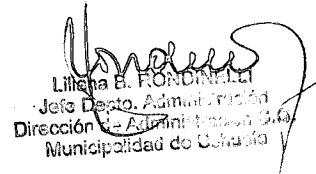 Liliana B. RONDINELLI
Jefe Depto. Administración
Dirección de Administración
Municipalidad de Ushuaia